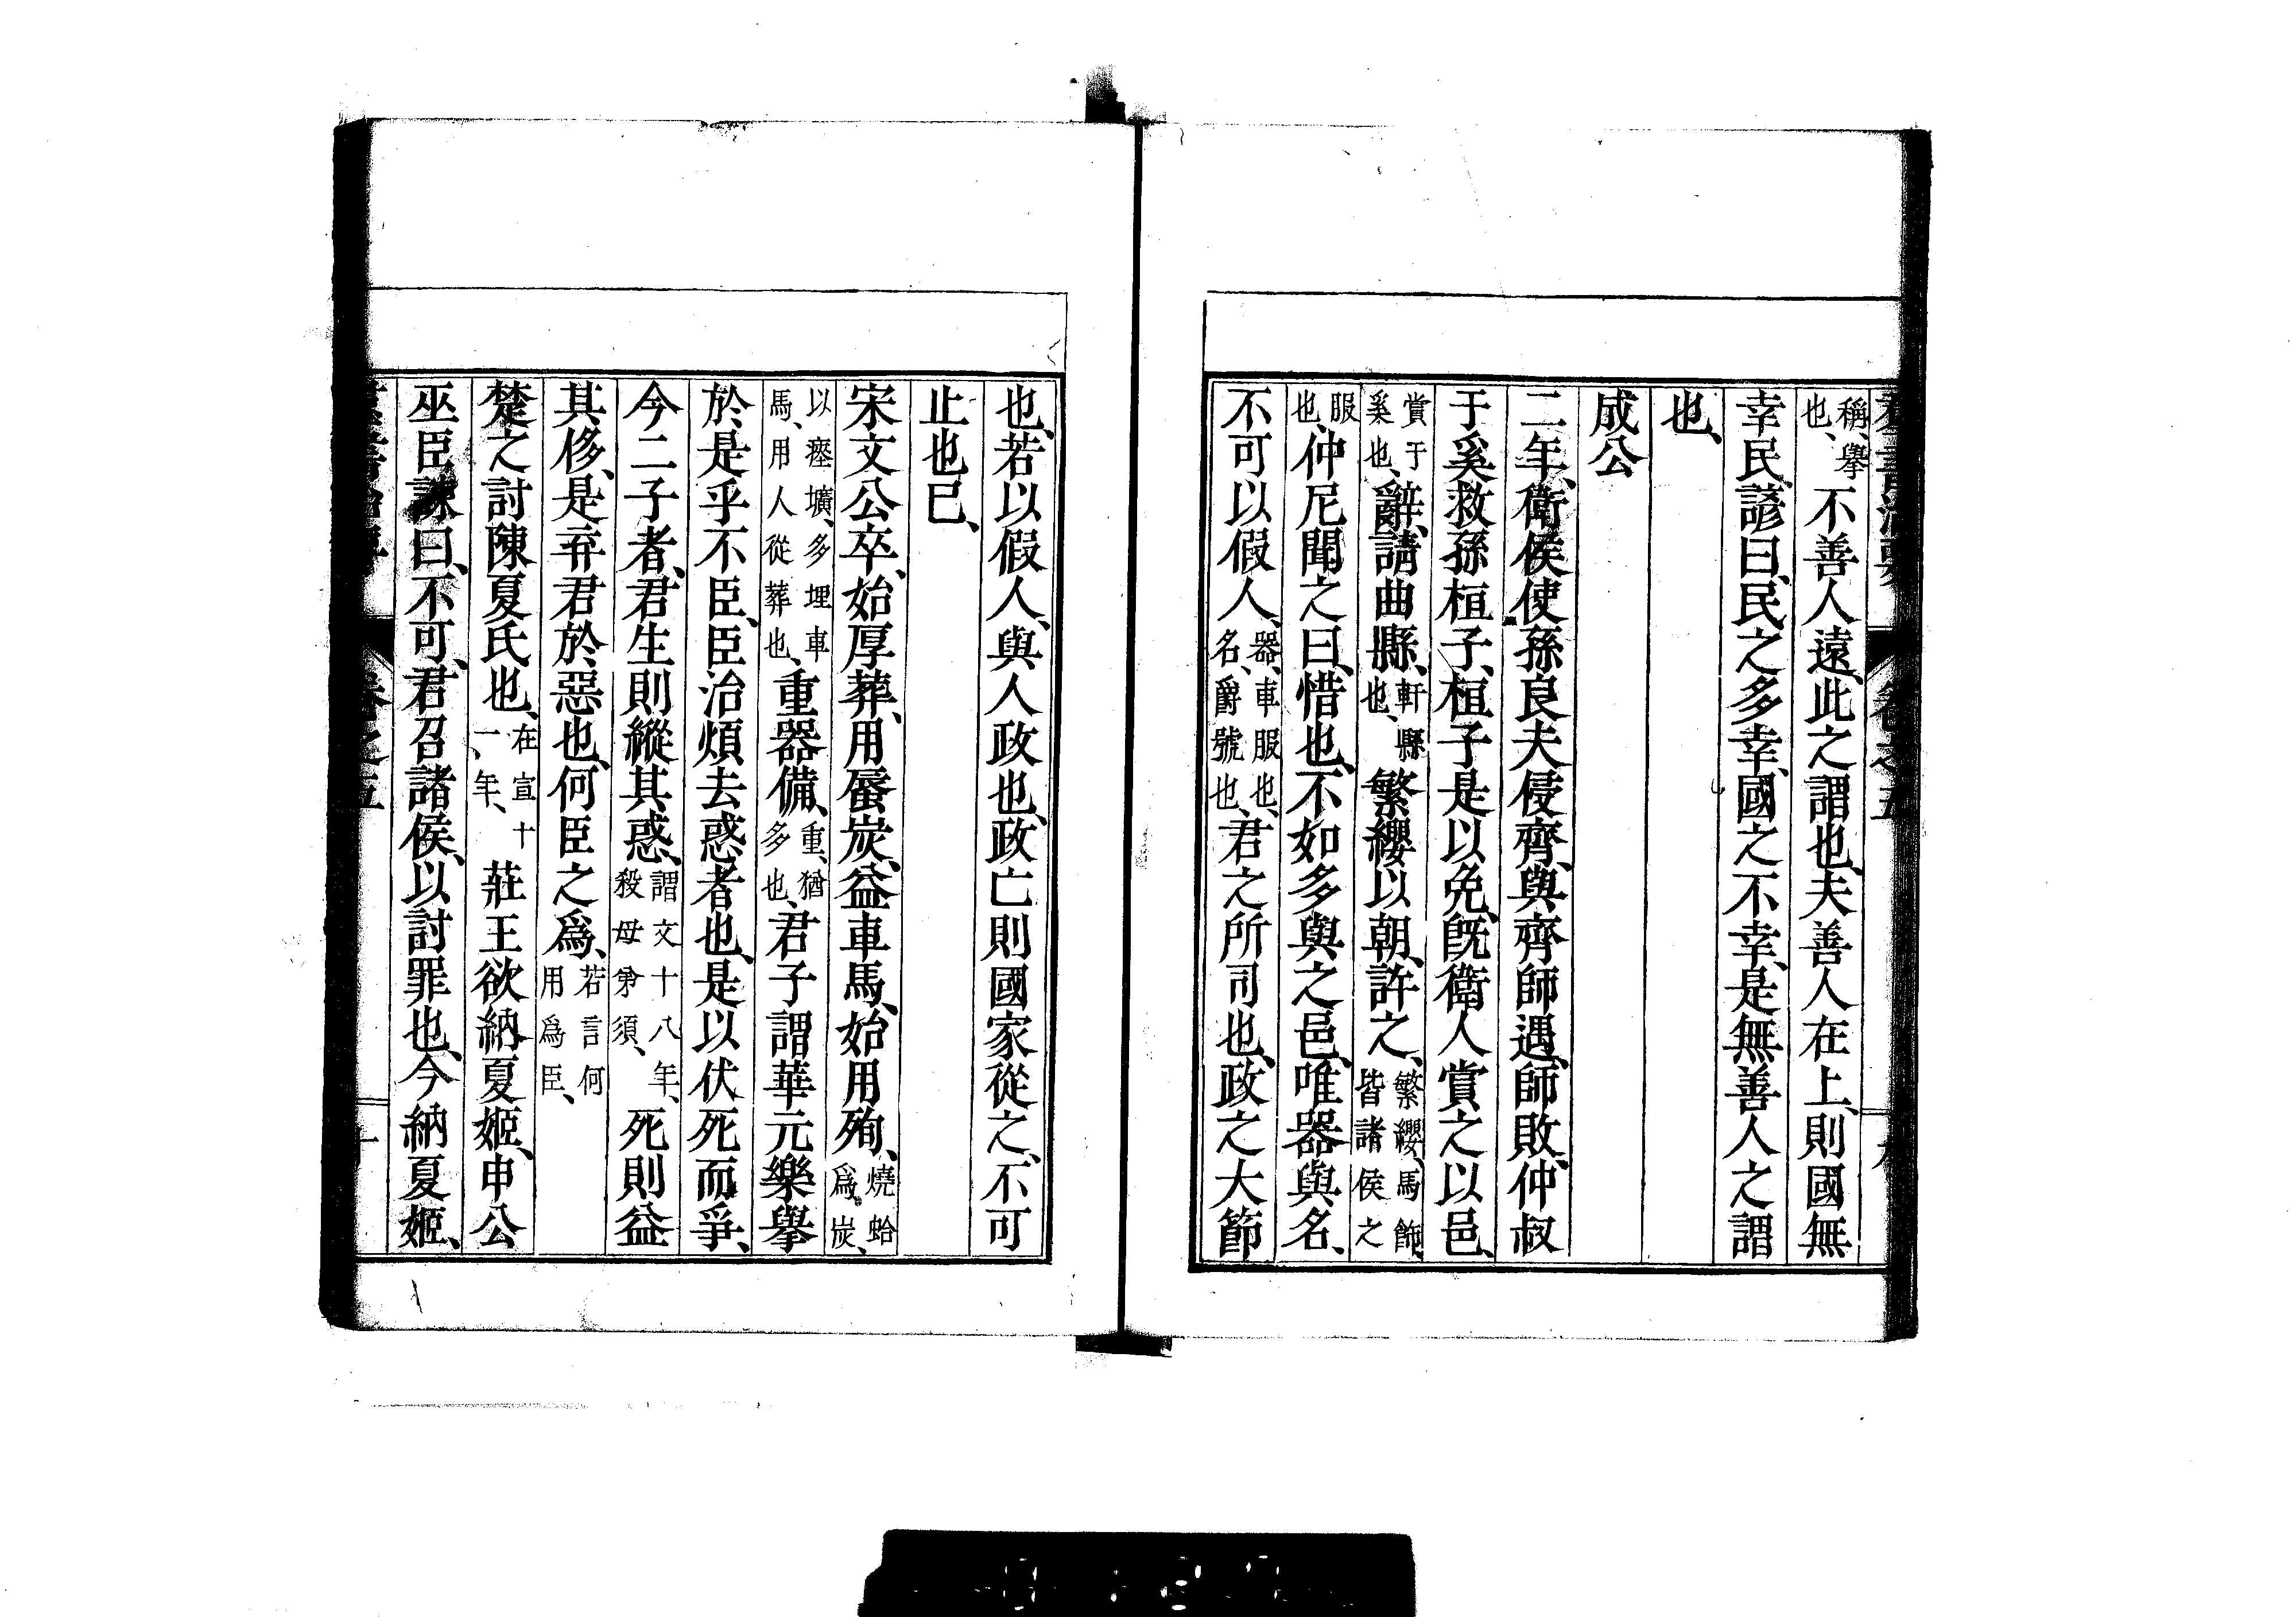 稱、舉也、不善人遠、此之謂也、夫善人在上、則國無
幸民、諺曰、民之多幸、國之不幸、是無善人之謂
也、
成公
二年、衛侯使孫良夫侵齊、與齊師遇、師敗、仲叔
于奚救孫桓子、桓子是以免、既衛人賞之以邑、
賞于奚也、辭、請曲縣、軒縣也、繁纓以朝、許之、繁纓、馬飾、皆諸侯之
服也、仲尼聞之曰、惜也、不如多與之邑、唯器與名、
不可以假人、器、車服也、名、爵號也、君之所司也、政之大節
也、若以假人、與人政也、政亡則國家從之、不可
止也已、
宋文公卒、始厚葬、用蜃炭、益車馬、始用殉、燒蛤爲炭、
以瘞壙、多埋車馬、用人從葬也、重器備、重、猶多也、君子謂華元樂舉
於是乎不臣、臣治煩去惑者也、是以伏死而爭、
今二子者、君生則縱其惑、謂文十八年、殺母弟須、死則益
其侈、是弃君於惡也、何臣之爲、若言何用爲臣、
楚之討陳夏氏也、在宣十一年、莊王欲納夏姬、申公
巫臣諫曰、不可、君召諸侯、以討罪也、今納夏姬、